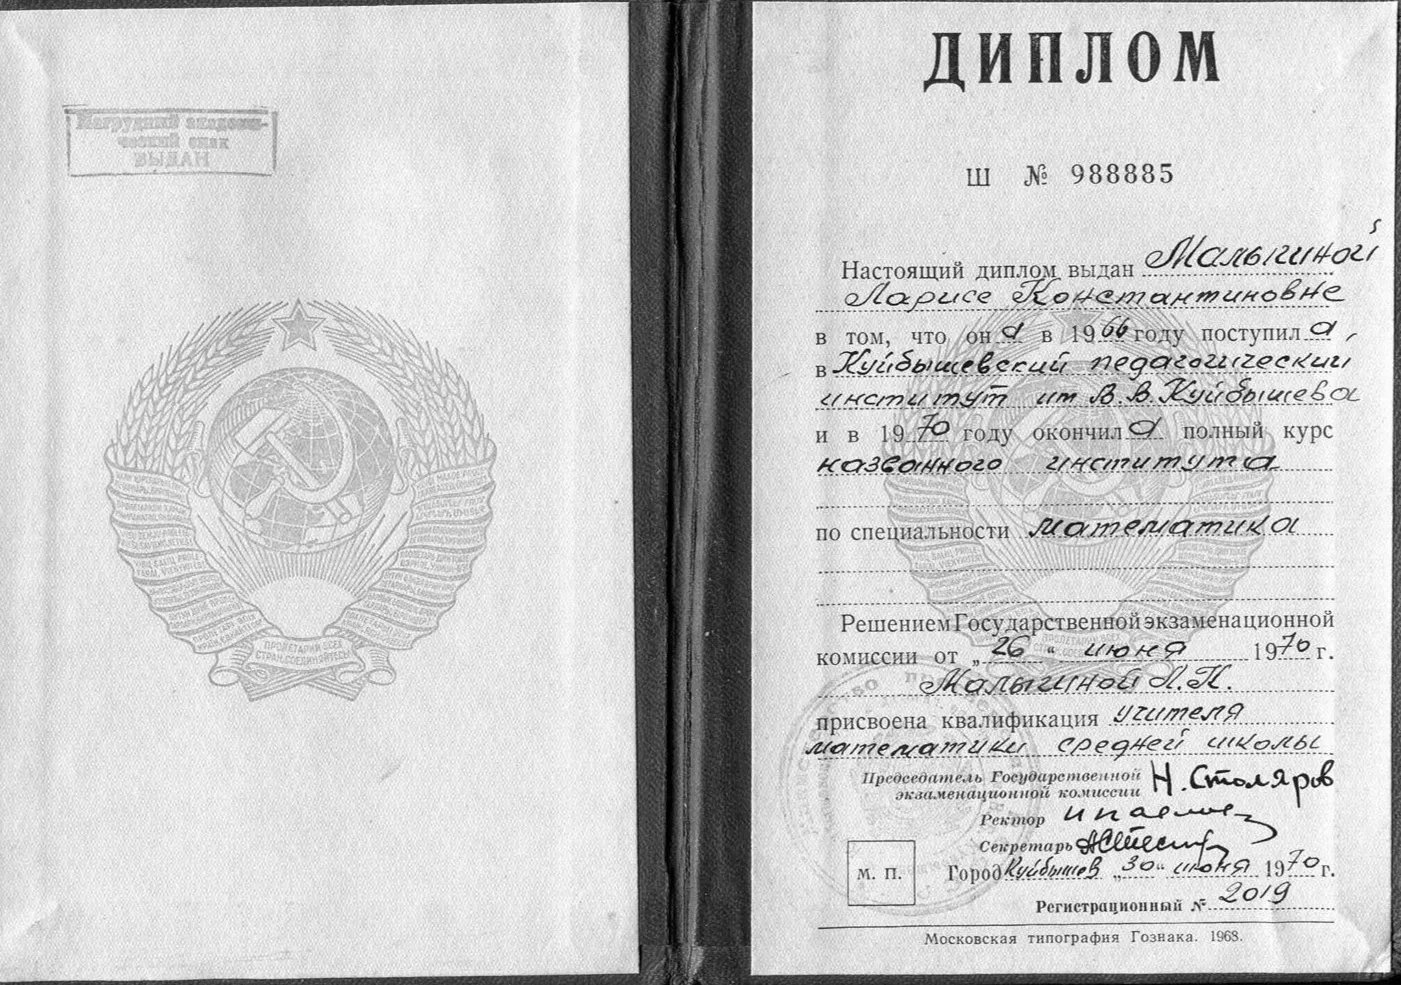 Нагрудный академи-
ческий знак
ВЫДАН
ПРОЛЕТАРИИ ВСЕХ
СТРАН, СОЕДИНЯЙТЕСЬ!
ДИПЛОМ
Ш № 988885
Настоящий диплом выдан Малыгиной
Ларисе Константиновне
в том, что она в 1966 году поступила
в Куйбышевский педагогический
институт им В.В.Куйбышева
и в 1970 году окончила полный курс
названного института
по специальности математика
Решением Государственной экзаменационной
комиссии от „26“ июня 1970 г.
Малыгиной Л.К.
присвоена квалификация учителя
математики средней школы
Председатель Государственной
экзаменационной комиссии Н. Столяров
Ректор
Секретарь
М. П.
Город Куйбышев „30“ июня 1970 г.
Регистрационный № 2019
Московская типография Гознака. 1968.